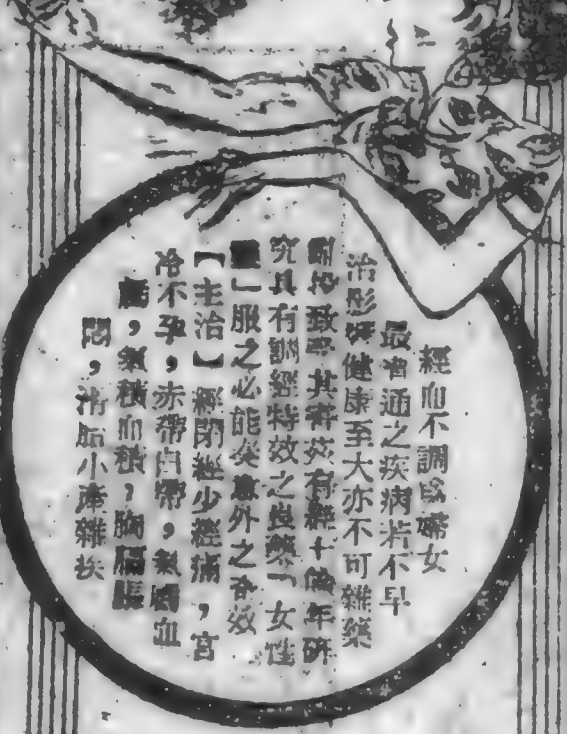 經血不調為婦女
最普通之疾病若不早
治影響健康至大亦不可雜藥
亂投致 其害 有經十餘年研
究具有調經特效之良藥「女性
」服之必能奏意外之奇效
【主治】經閉經少經痛，宮
冷不孕，赤帶白帶，氣 血
，氣積血積，胸膈脹
悶，滑胎小產雜疾